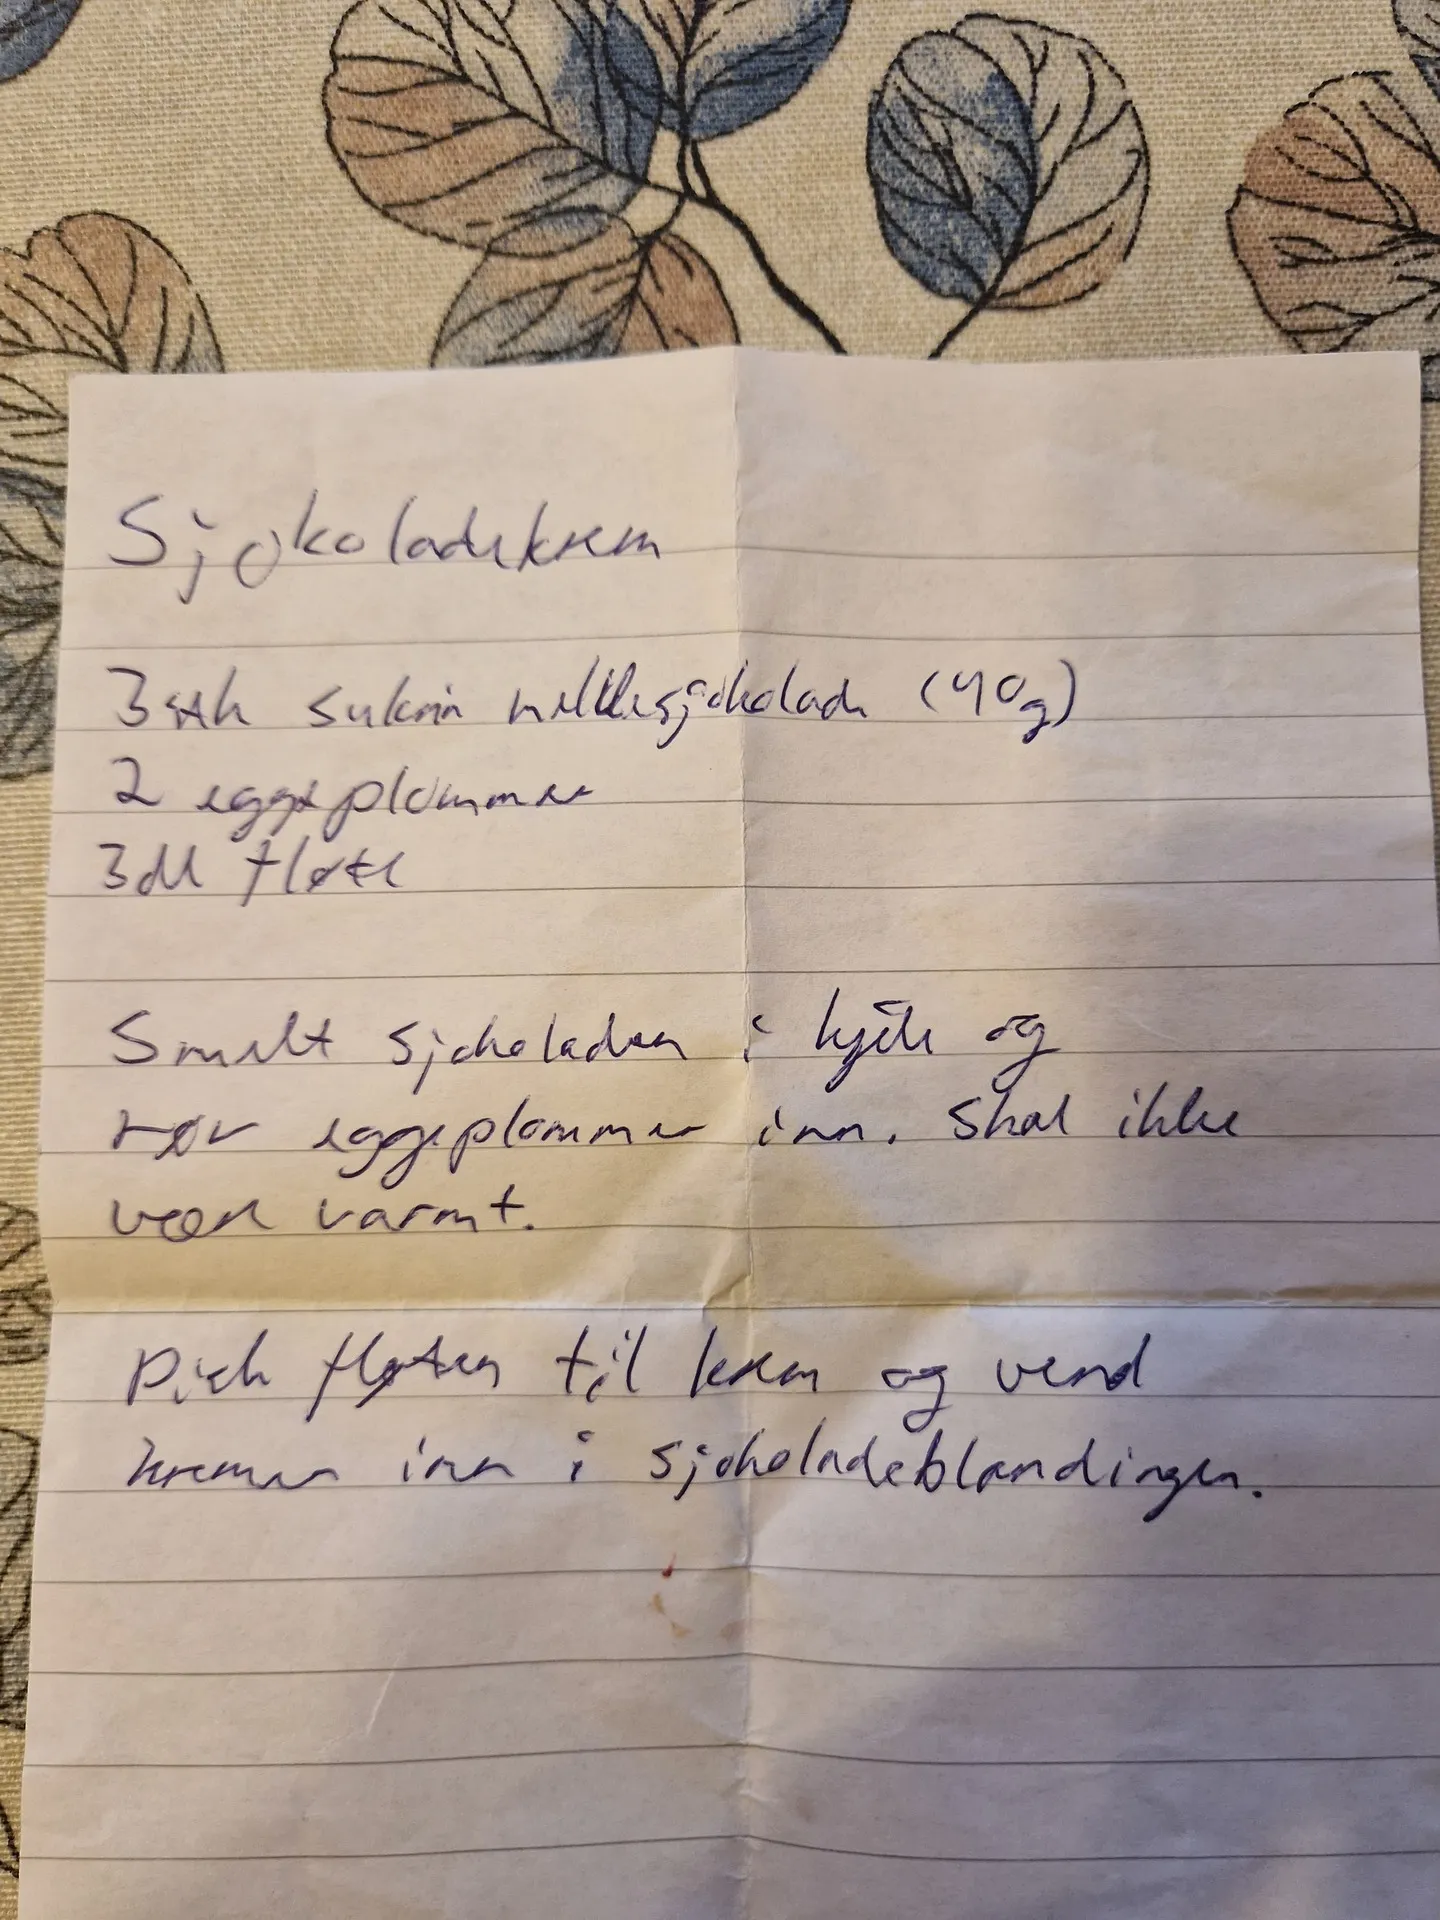 Sjokoladekrem
3 stk sukrin melkesjokolade (40g)
2 eggeplommer
3dl fløte
Smelt sjokoladen i kjele og
rør eggeplommer inn. Skal ikke
være varmt.
Pisk fløten til krem og vend
kremen inn i sjokoladeblandingen.